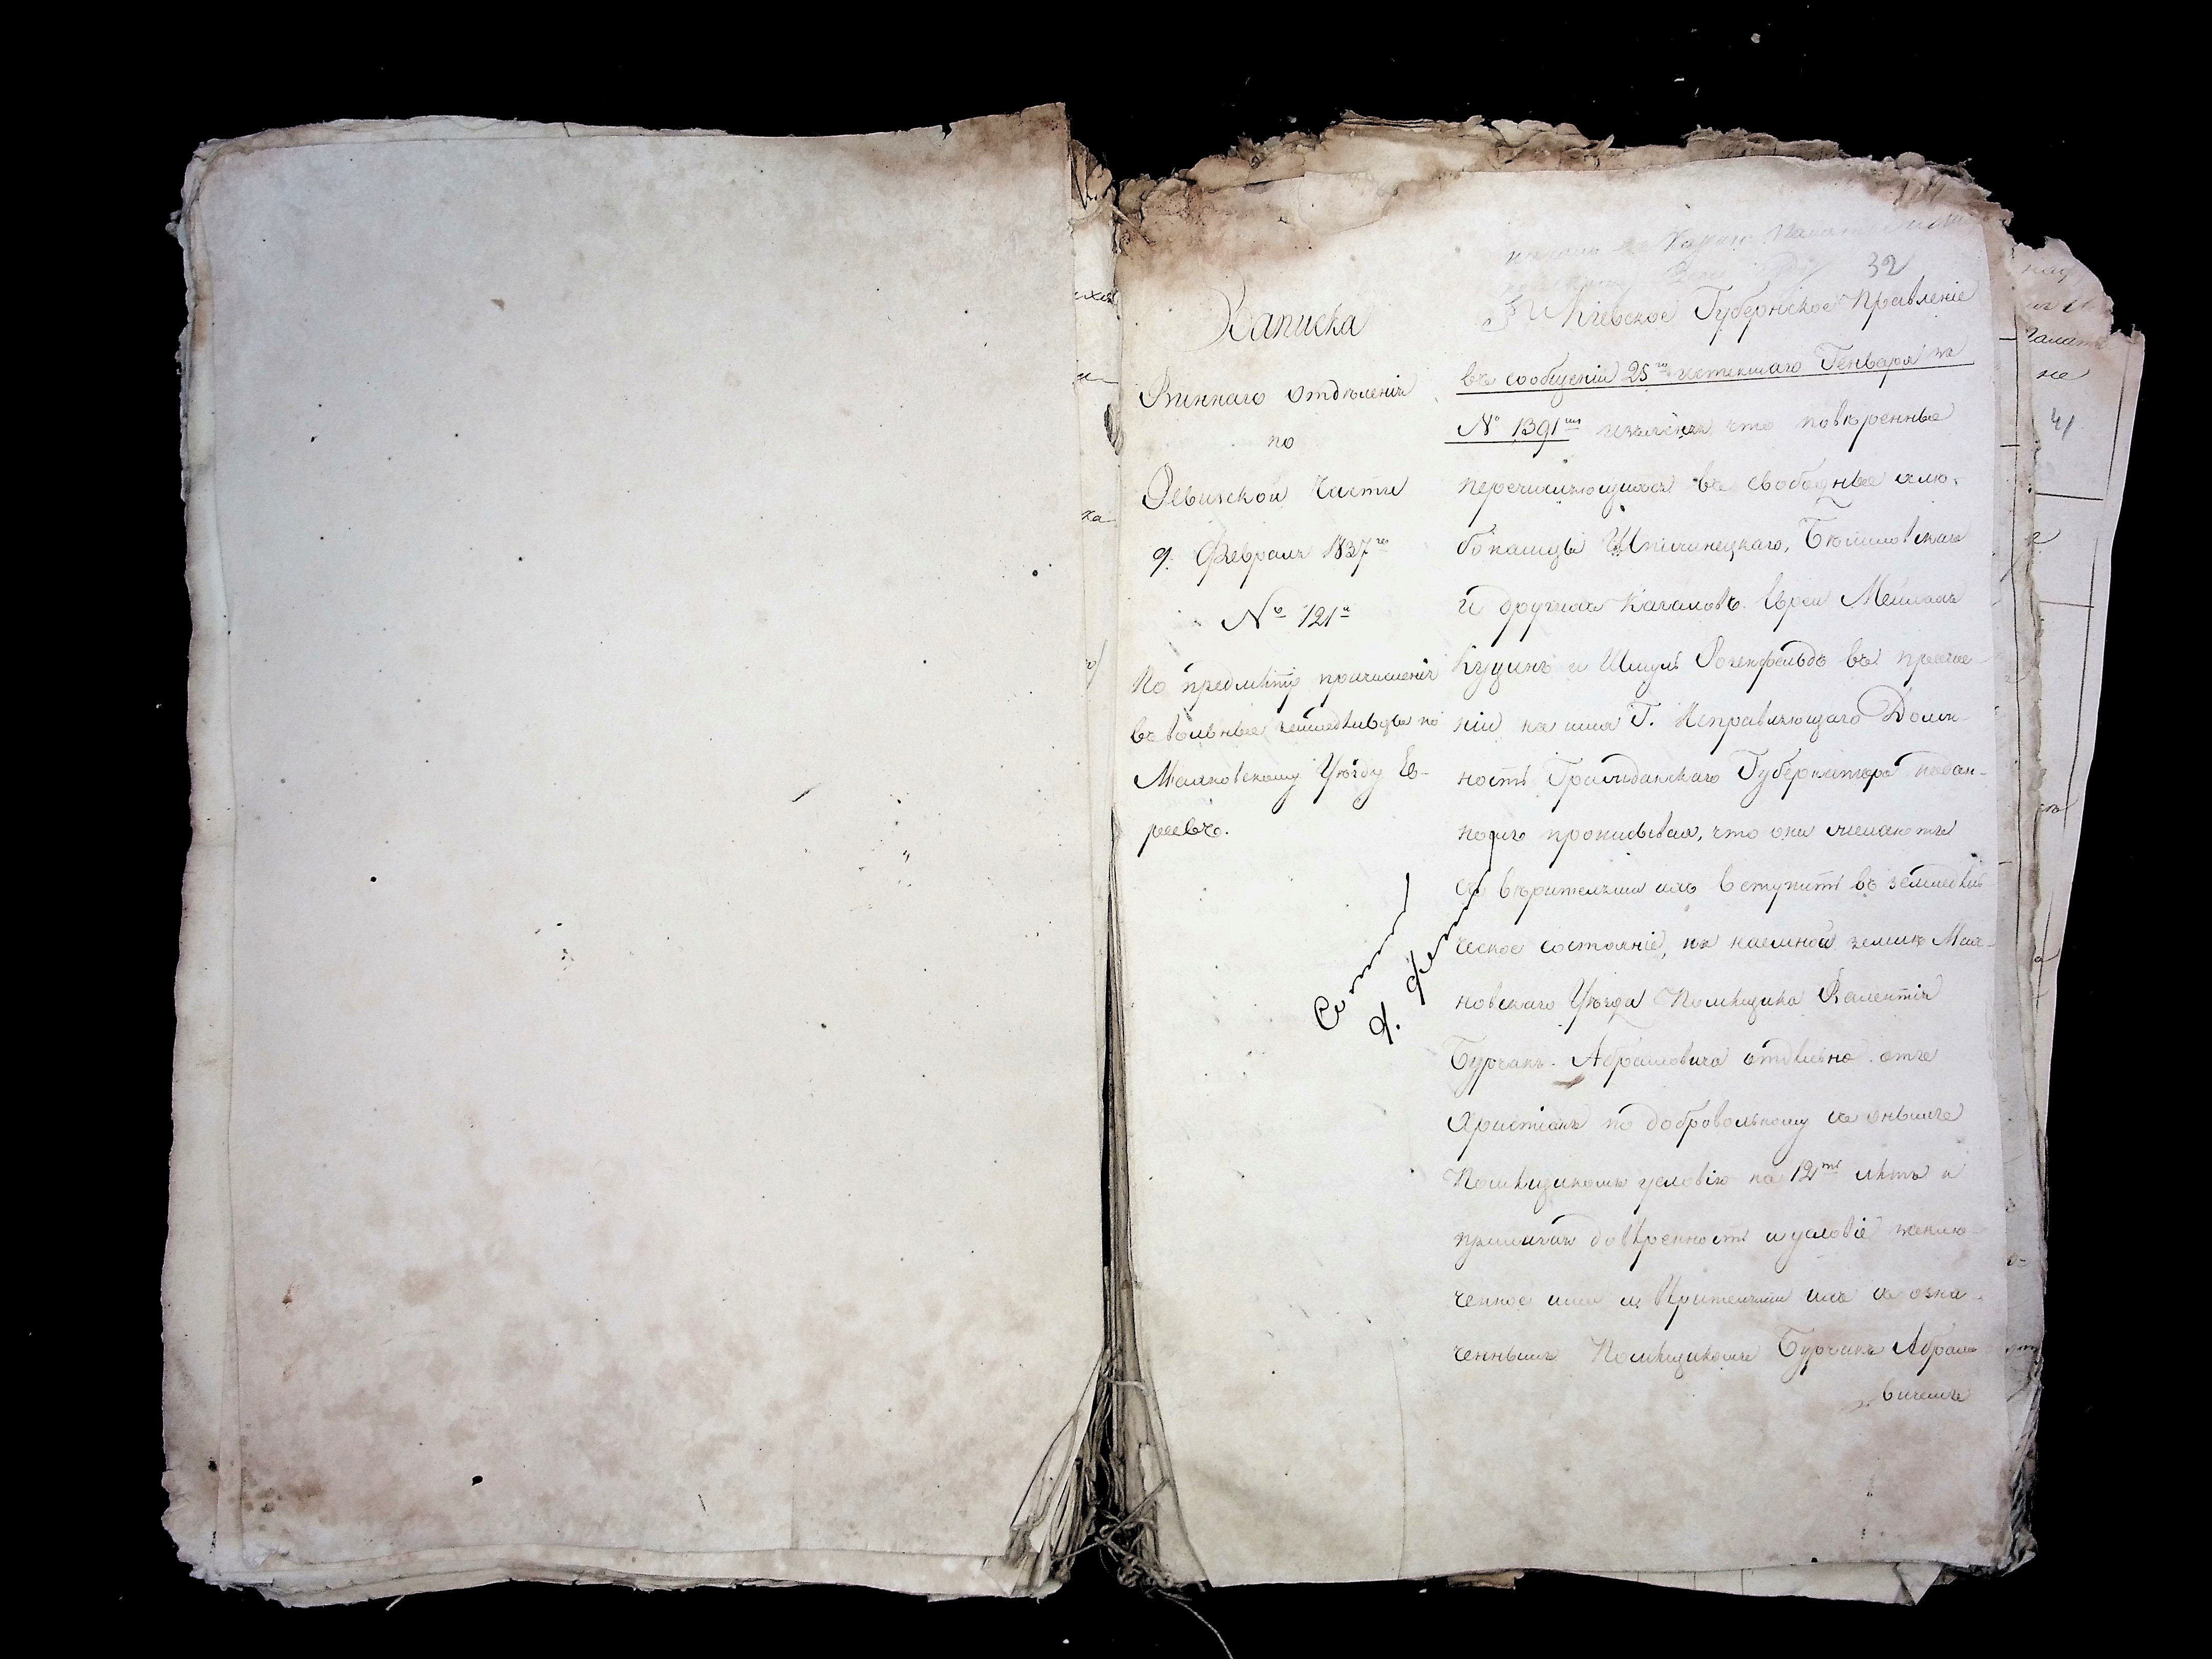 32
Записка
Виннаго отдѣленія
по
Ревизской части
9. Февраля 1837го
№ 121й
По предмѣту причисленія
въ вольные земледѣльцы по
Махновскому Уѣзду Ев-
реевъ.
Кіевское Губернское Правленіе
въ сообщеніи 25го истекшаго Генваря за
№ 1391мъ что повѣренные
перечисляющихся въ свободные хлѣ-
бопашцы Шпичинецкаго,
и другихъ Кагаловъ Евреи
и Шмуль Розенфельдъ въ проше-
ніи на имя Г. Исправляющаго Долж-
ность Гражданскаго Губернатора подан-
номъ прописывая, что они желаютъ
съ вѣрителями ихъ вступить въ земледѣль-
ческое состояніе, на наемной землѣ Мах-
новскаго Уѣзда Помѣщика Валентія
Бурчакъ-Абрамовича отдѣльно отъ
Христіанъ по добровольному съ онымъ
Помѣщикомъ условію на 12ть лѣтъ и
прилагая довѣренность и условіе заклю-
ченное ими и вѣрителями ихъ съ озна-
ченнымъ Помѣщикомъ Бурчакъ Абрамо-
вичемъ